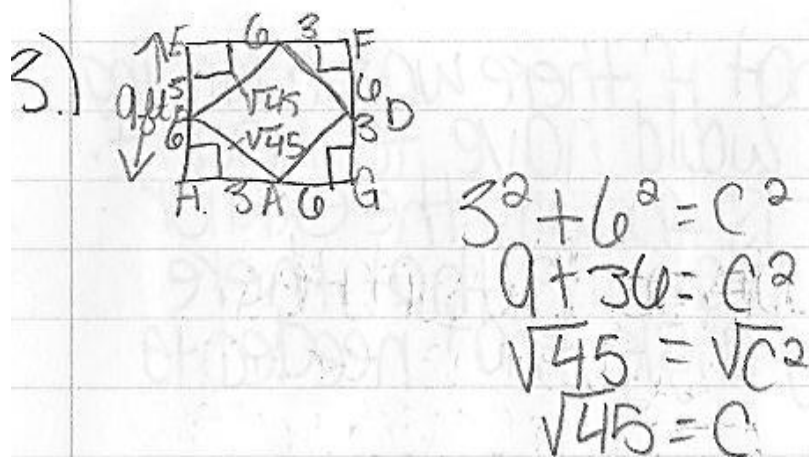 3.)
E 6 3 F
9ft 5 √45 6
6 √45 3 D
H. 3 A 6 G
3² + 6² = C²
9 + 36 = C²
√45 = √C²
√45 = C